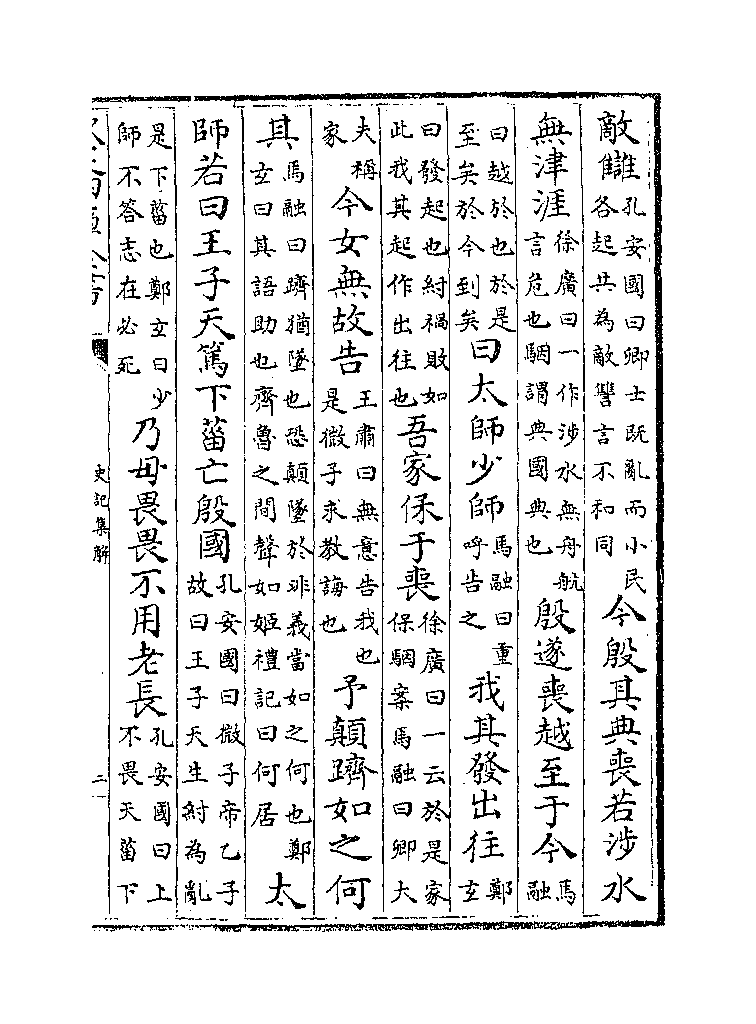 敵讎孔安國曰卿士既亂而小民各起共為敵讐言不和同今殷其典喪若涉水
無津涯徐廣曰一作涉水無舟航言危也駰謂典國典也殷遂喪越至于今馬融
曰越於也於是至矣於今到矣曰太師少師馬融曰重呼告之我其發出往鄭玄
曰發起也紂禍敗如此我其起作出往也吾家保于喪徐廣曰一云於是家保駰案馬融曰卿大
夫稱家今女無故告王肅曰無意告我也是微子求教誨也予顛躋如之何
其馬融曰躋猶墜也恐顛墜於非義當如之何也鄭玄曰其語助也齊魯之間聲如姬禮記曰何居太
師若曰王子天篤下菑亡殷國孔安國曰微子帝乙子故曰王子天生紂為亂
是下菑也鄭玄曰少師不答志在必死乃毋畏畏不用老長孔安國曰上不畏天菑下
史記集解